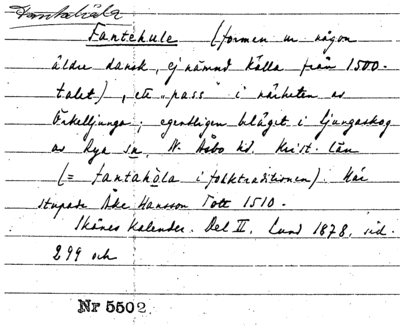 Fantahåla
Fantehule (formen ur någon
äldre dansk, ej nämnd källa från 1500-
talet), ett "pass" i närheten av
Örkelljunga; egentligen beläget i Ljungaskog
av Rya sn. N. Åsbo hd. Krist. län
(= fantahåla i folktraditionen). Här
stupade Åke Hansson Tott 1510.
Skånes Kalender. Del II. Lund 1878, sid.
299 och
Nr 5502